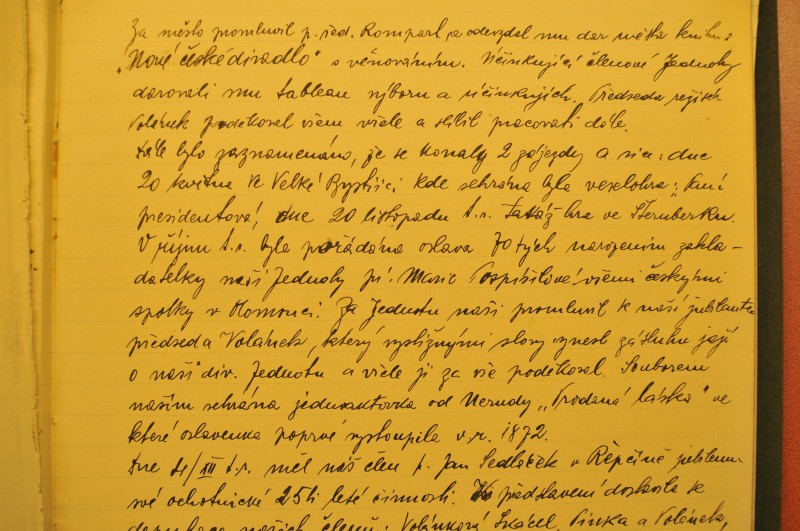 Za město promluvil p. řed. Rompart a odevzdal mu dar města knihu:
„Nové české divadlo" s věnováním. Účinkující členové Jednoty
darovali mu tableau výboru a účinkujících. Předseda režisér
Volánek poděkoval všem vřele a slíbil pracovati dále.
Dále bylo zaznamenáno, že se konaly 2 zájezdy a sice: dne
20 května ve Velké Bystřici kde sehrána byla veselohra: „Paní
presidentová", dne 20 listopadu t.r. tatáž hra ve Šternberku.
V říjnu t.r. byla pořádána oslava 70tých narozenin zakla-
datelky naší Jednoty pí. Marie Pospíšilové všemi českými
spolky v Olomouci. Za Jednotu naši promluvil k naší jubilantce
předseda Volánek, který výstižnými slovy vznesl zásluhu její
o naši div. Jednotu a vřele jí za vše poděkoval. Souborem
naším sehrána jednoaktovka od Nerudy „Prodaná láska" ve
které oslavenka poprvé vystoupila v r. 1872.
Dne 4/XII t.r. měl náš člen p. Jan Sedláček v Řepčíně jubileum
své ochotnické 25ti leté činnosti. K představení dostavilo se
našich členů: Volánková, Skácel, Pinka a Volánek,